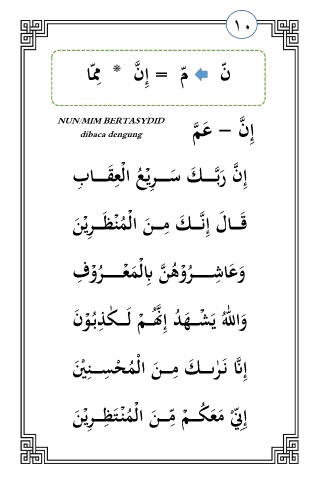 ١٠
نّ ← مّ = إِنَّ * مِمّا
إِنَّ – عَمَّ
NUN/MIM BERTASYDID
dibaca dengung
إِنَّ رَبَّــكَ سَــرِيْعُ الْعِقَــابِ
قَــالَ إِنَّــكَ مِــنَ الْمُنْظَــرِيْنَ
وَعَاشِــرُوْهُنَّ بِالْمَعْــرُوْفِ
وَاللّٰهُ يَشْــهَدُ إِنَّهُــمْ لَــكٰذِبُوْنَ
إِنَّا نَرٰىــكَ مِــنَ الْمُحْسِــنِيْنَ
إِنِّيْ مَعَكُــمْ مِّــنَ الْمُنْتَظِــرِيْنَ